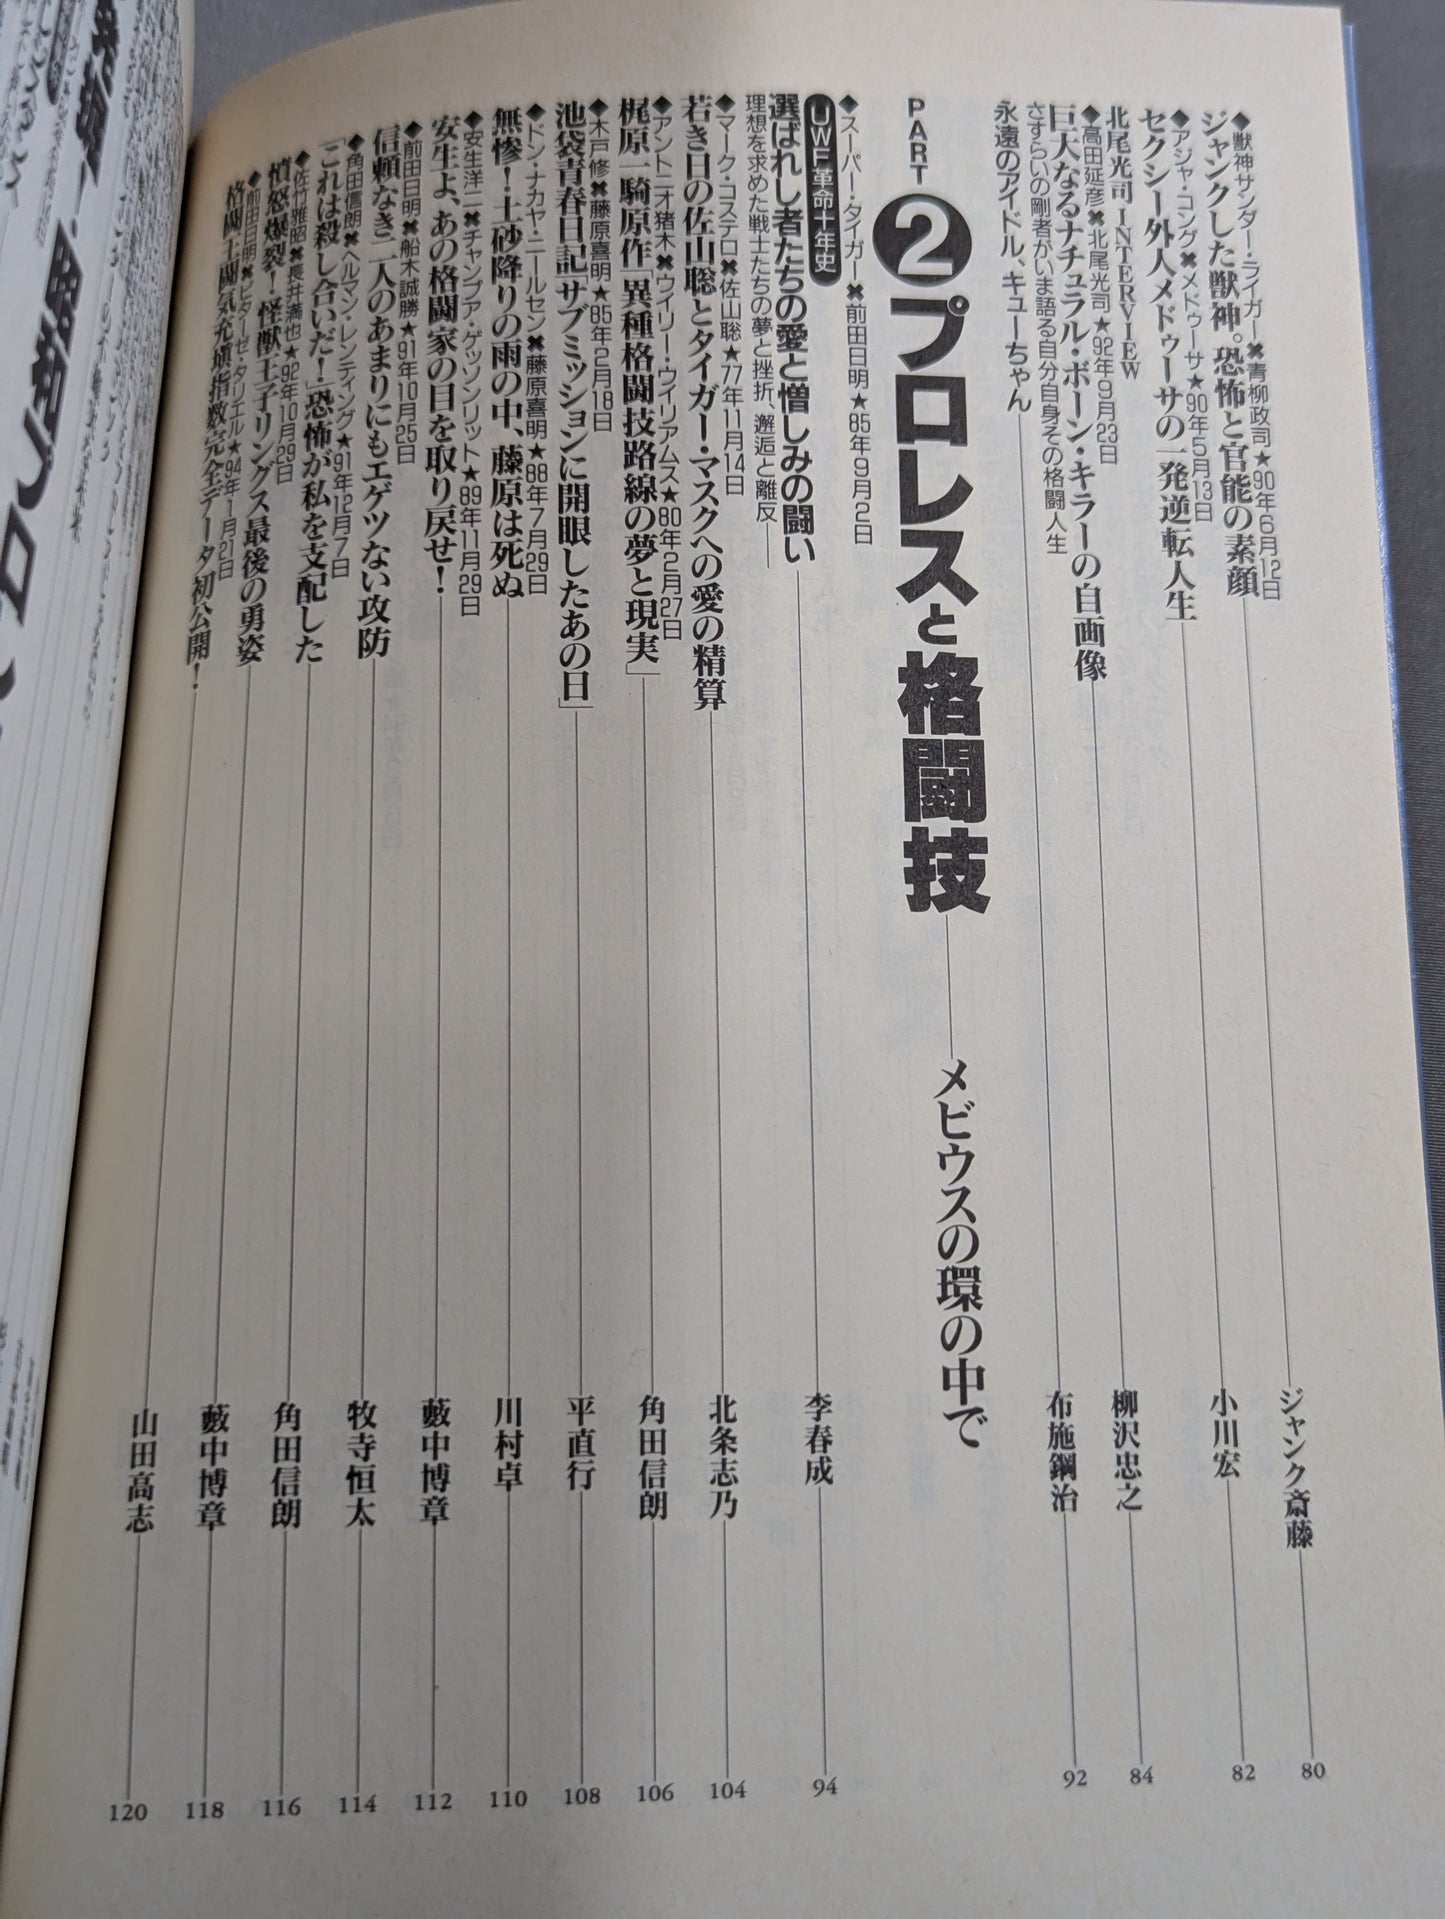 ◆獣神サンダー・ライガー✖青柳政司★90年6月12日
ジャンクした獣神。恐怖と官能の素顔 ジャンク斎藤 80
◆アジャ・コング✖メドゥーサ★90年5月13日
セクシー外人メドゥーサの一発逆転人生 小川宏 82
北尾光司 INTERVIEW
◆高田延彦✖北尾光司★92年9月23日
巨大なるナチュラル・ボーン・キラーの自画像 柳沢忠之 84
さすらいの剛者がいま語る自分自身その格闘人生
永遠のアイドル、キューちゃん 布施鋼治 92
PART ② プロレスと格闘技 メビウスの環の中で
◆スーパー・タイガー✖前田日明★85年9月2日
UWF革命十年史
選ばれし者たちの愛と憎しみの闘い 李春成 94
理想を求めた戦士たちの夢と挫折、邂逅と離反――
◆マーク・コステロ✖佐山聡★77年11月14日
若き日の佐山聡とタイガー・マスクへの愛の精算 北条志乃 104
◆アントニオ猪木✖ウイリー・ウイリアムス★80年2月27日
梶原一騎原作「異種格闘技路線の夢と現実」 角田信朗 106
◆木戸修✖藤原喜明★85年2月18日
池袋青春日記「サブミッションに開眼したあの日」 平直行 108
◆ドン・ナカヤ・ニールセン✖藤原喜明★88年7月29日
無惨！土砂降りの雨の中、藤原は死ぬ 川村卓 110
◆安生洋二✖チャンプア・ゲッソンリット★89年11月29日
安生よ、あの格闘家の目を取り戻せ！ 藪中博章 112
◆前田日明✖船木誠勝★91年10月25日
信頼なき二人のあまりにもエゲツない攻防 牧寺恒太 114
◆角田信朗✖ヘルマン・レンティング★91年12月7日
「これは殺し合いだ！」恐怖が私を支配した 角田信朗 116
◆佐竹雅昭✖長井満也★92年10月29日
憤怒爆裂！怪獣王子リングス最後の勇姿 藪中博章 118
◆前田日明✖ビターゼ・タリエル★94年1月21日
格闘王闘気充填指数完全データ初公開！ 山田高志 120